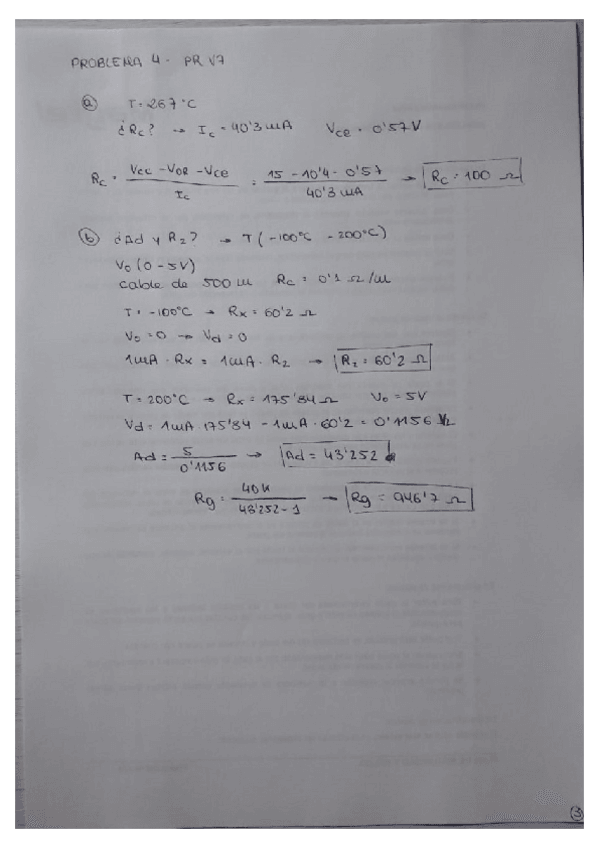 PROBLEMA 4 - PR V7
a) T = 267 °C
¿Rc? → Ic = 40'3 mA Vce = 0'57 V
Rc = (Vcc - Vor - Vce) / Ic = (15 - 10'4 - 0'57) / 40'3 mA → Rc = 100 Ω
b) ¿Ad y R2? → T (-100°C - 200°C)
Vo (0 - 5V)
cable de 500 m Rc = 0'1 Ω/m
T = -100°C → Rx = 60'2 Ω
Vo = 0 → Vd = 0
1mA · Rx = 1mA · R2 → R2 = 60'2 Ω
T = 200°C → Rx = 175'84 Ω Vo = 5V
Vd = 1mA · 175'84 - 1mA · 60'2 = 0'1156 V
Ad = 5 / 0'1156 → Ad = 43'252
Rg = 40k / (43'252 - 1) → Rg = 946'7 Ω
3